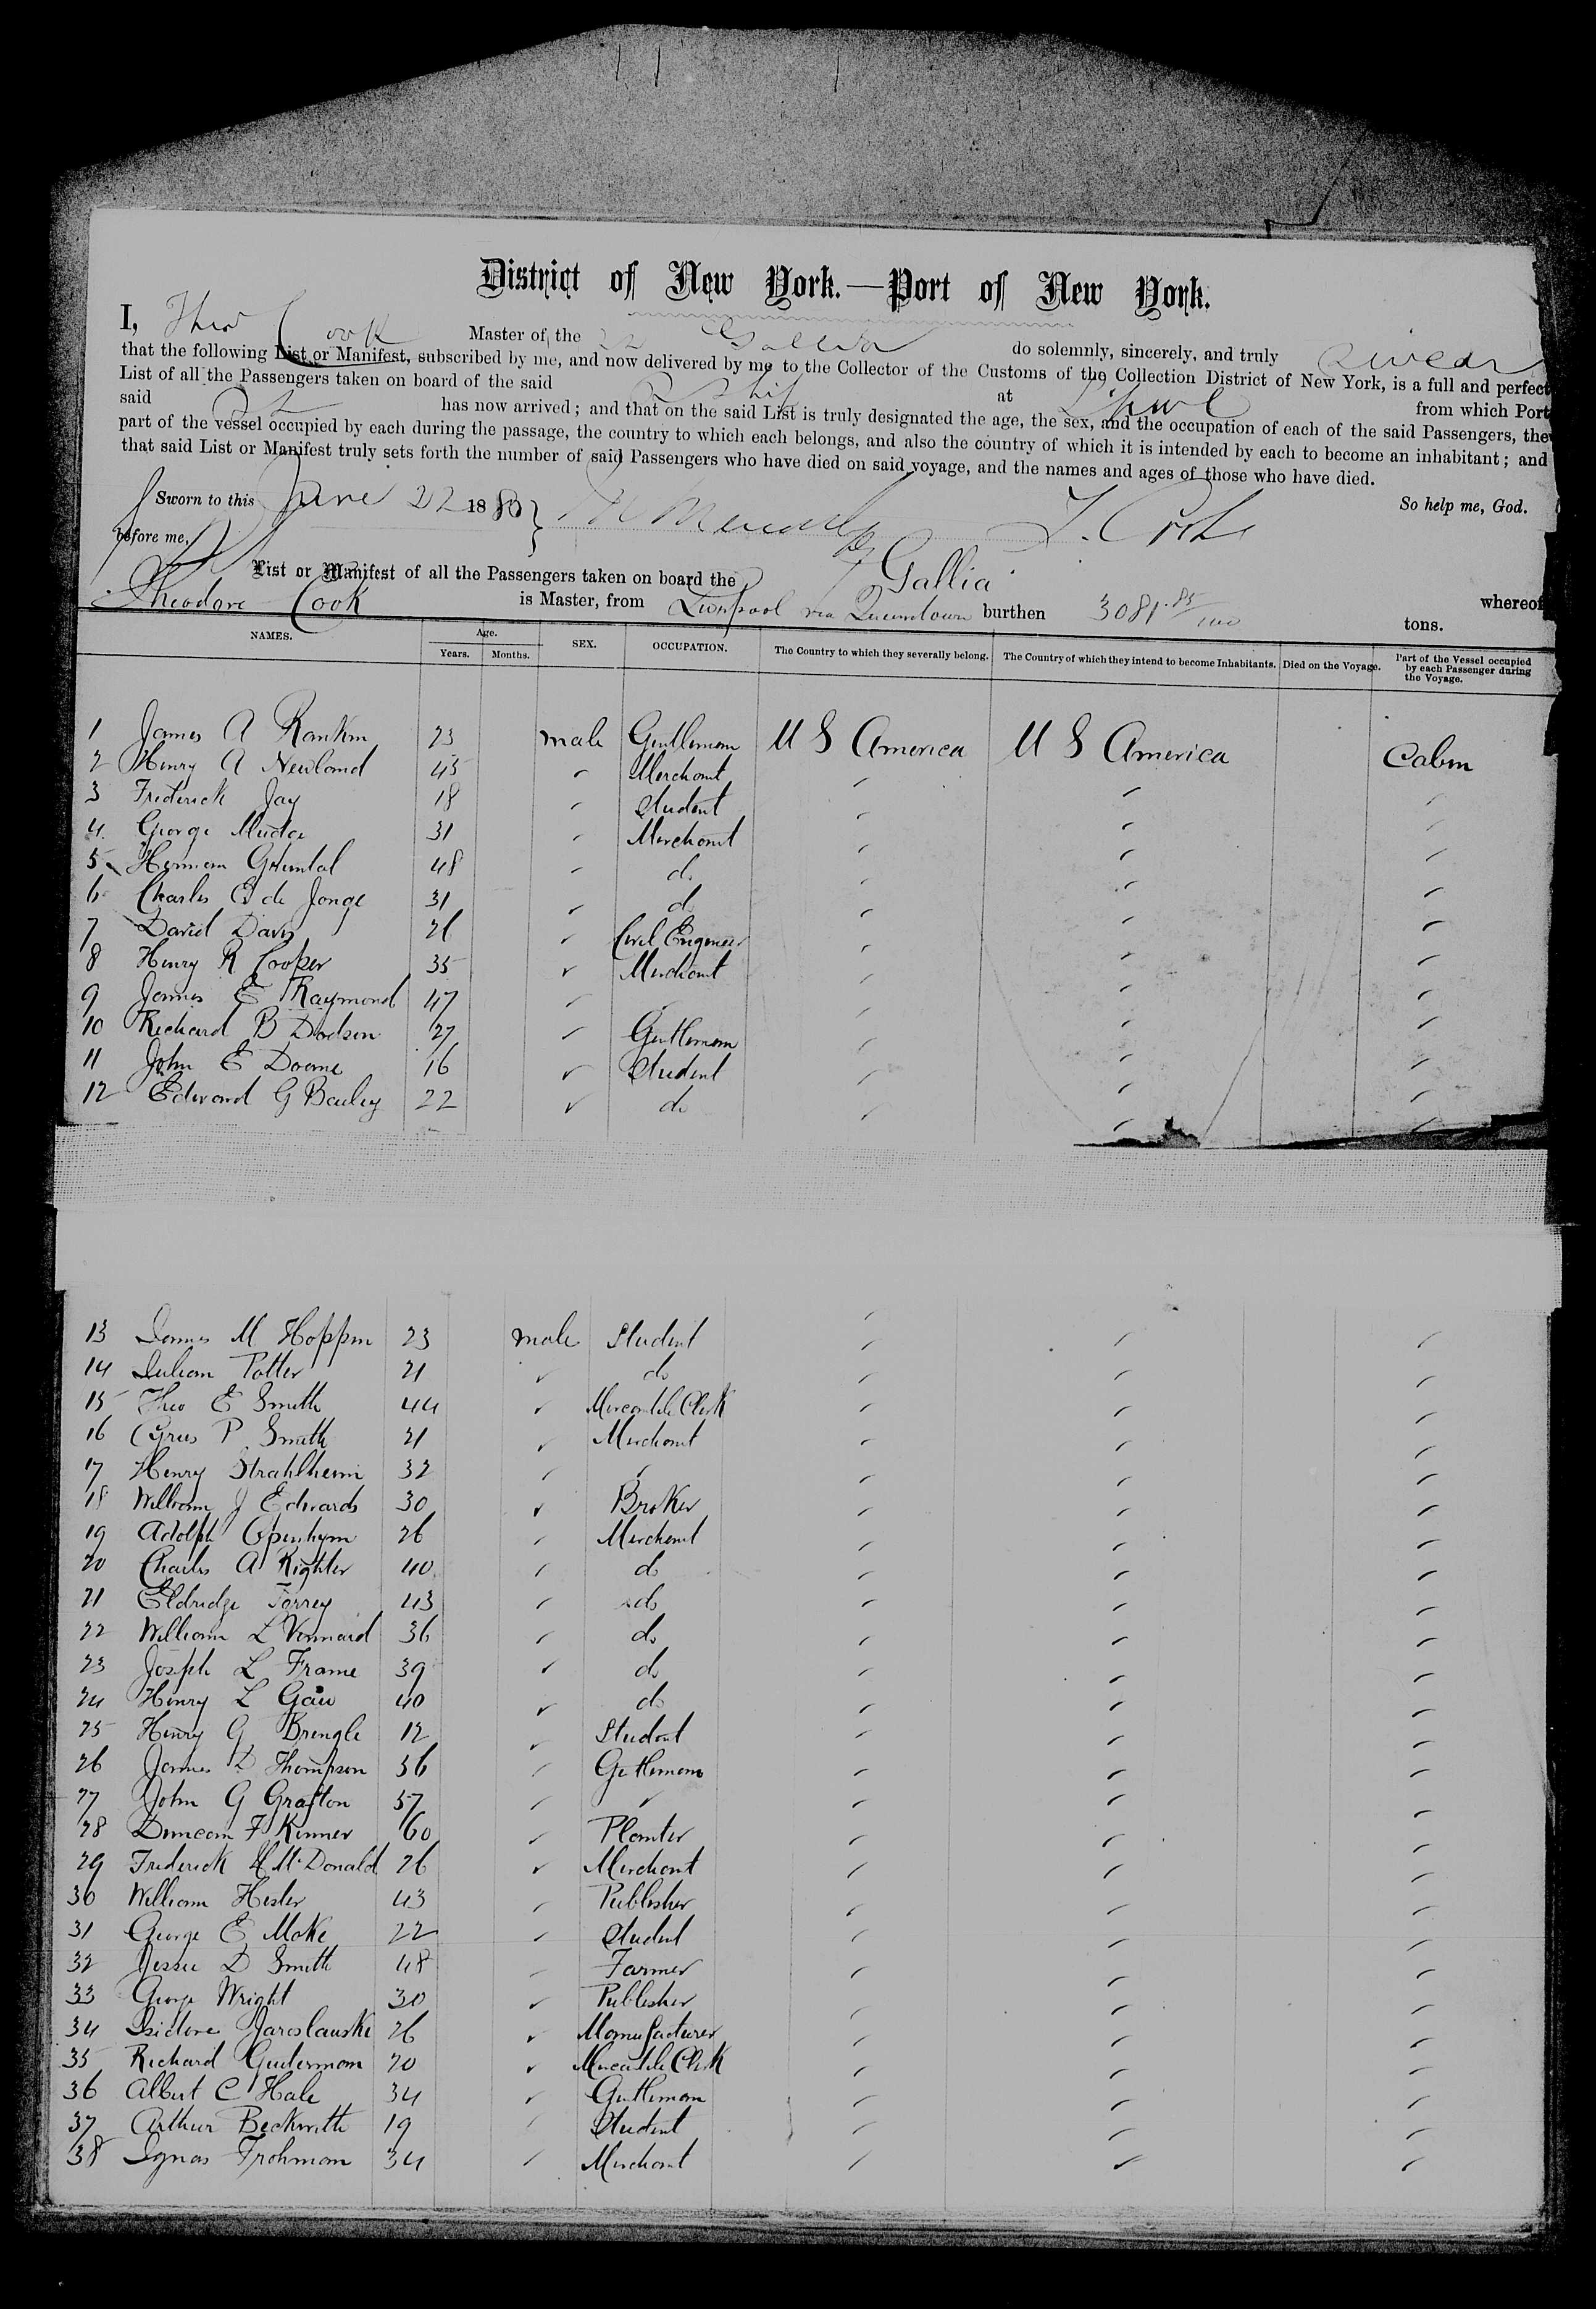 District of New York.—Port of New York.
I, Theo Cook Master of the SS Gallia do solemnly, sincerely, and truly swear
that the following List or Manifest, subscribed by me, and now delivered by me to the Collector of the Customs of the Collection District of New York, is a full and perfect
List of all the Passengers taken on board of the said SShip at L'pool from which Port
said has now arrived; and that on the said List is truly designated the age, the sex, and the occupation of each of the said Passengers, the
part of the vessel occupied by each during the passage, the country to which each belongs, and also the country of which it is intended by each to become an inhabitant; and
that said List or Manifest truly sets forth the number of said Passengers who have died on said voyage, and the names and ages of those who have died.
So help me, God.
Sworn to this June 22 1880
before me, T. Cook
List or Manifest of all the Passengers taken on board the Gallia whereof
Theodore Cook is Master, from Liverpool via Queenstown burthen 3081 85/100 tons.
NAMES. Age. Years. Months. SEX. OCCUPATION. The Country to which they severally belong. The Country of which they intend to become Inhabitants. Died on the Voyage. Part of the Vessel occupied by each Passenger during the Voyage.
1 James A Rankin 23 male Gentleman U S America U S America Cabin
2 Henry A Newland 45 Merchant
3 Frederick Jay 18 Student
4 George Mudge 31 Merchant
5 Herman 48 do
6 Charles E de Jonge 31 do
7 David Davis 26 Civil Engineer
8 Henry R Cooper 35 Merchant
9 James E Raymond 47
10 Richard B Dodson 27 Gentleman
11 John E Doane 16 Student
12 Edward G Bailey 22 do
13 James M Hoppin 23 male Student
14 Julian Potter 21 do
15 Theo E Smith 44 Mercantile Clerk
16 Cyrus P Smith 21 Merchant
17 Henry Strahlheim 32
18 William J Edwards 30 Broker
19 Adolph Openhym 26 Merchant
20 Charles A Righter 40 do
21 Eldridge Torrey 43 do
22 William L Vennard 36 do
23 Joseph L Frame 39 do
24 Henry L Gaw 40 do
25 Henry G Brengle 12 Student
26 James D Thompson 56 Gentleman
27 John G Grafton 57
28 Duncan F Kenner 60 Planter
29 Frederick H McDonald 26 Merchant
30 William Hester 43 Publisher
31 George E Moke 22 Student
32 Jessie D Smith 48 Farmer
33 George Wright 30 Publisher
34 Isidore Jaroslauski 26 Manufacturer
35 Richard Guterman 20 Mercantile Clerk
36 Albert C Hale 34 Gentleman
37 Arthur Beckwith 19 Student
38 Ignas Frohman 34 Merchant